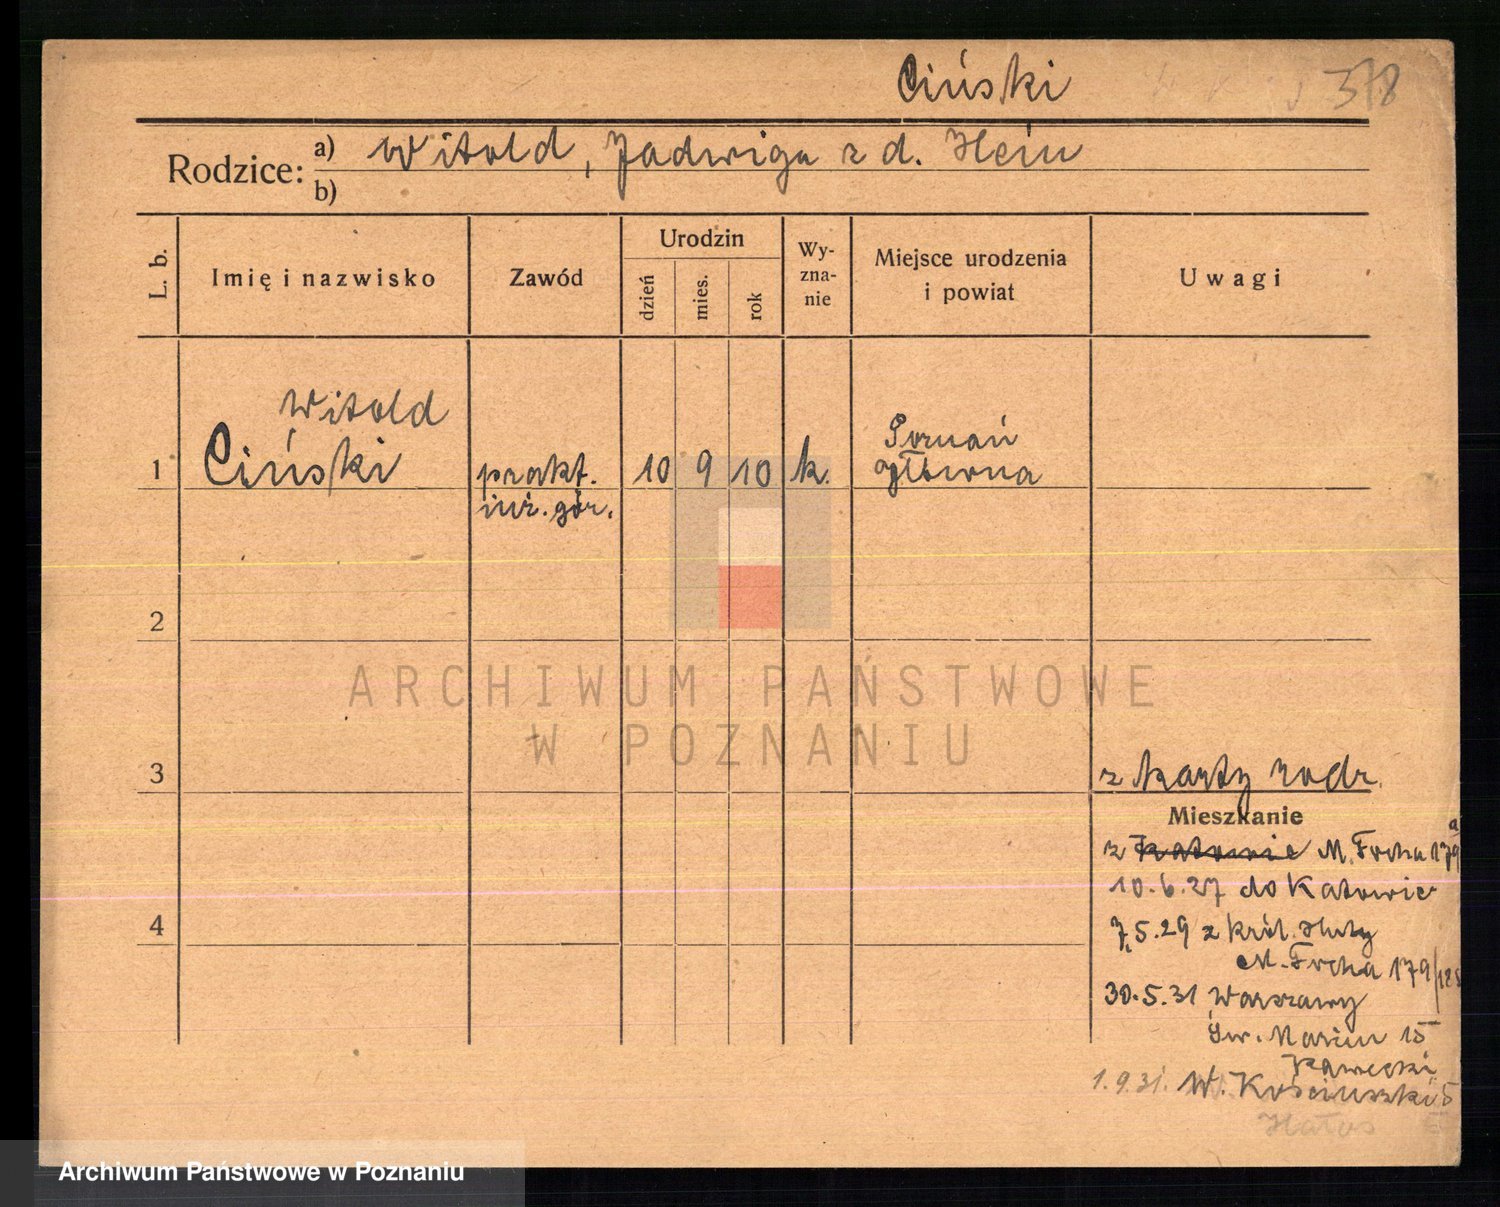 Ciński 378
Rodzice: a) Witold, Jadwiga z d. Hein
b)
L. b. Imię i nazwisko Zawód Urodzin dzień mies. rok Wy-zna-nie Miejsce urodzenia i powiat Uwagi
Witold
1 Ciński prakt. 10 9 10 k. Poznań
inż. gór. Główna
2
ARCHIWUM PAŃSTWOWE
W POZNANIU
3 z karty rodz.
Mieszkanie
z Katowic M. Focha 179
a
10.6.27 do Katowic
4 7.5.29 z Król. Huty
M. Focha 179/128
30.5.31 Warszawy
Św. Marcin 15
Kawecki
1.9.31. W. Kościuszki 5
Hałas
Archiwum Państwowe w Poznaniu